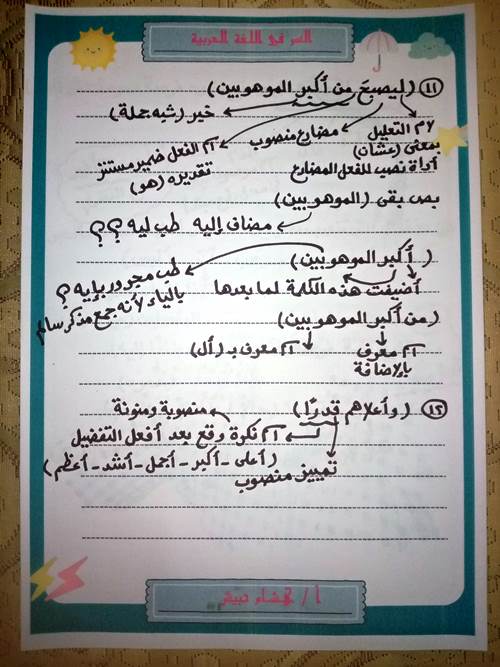 السر في اللغة العربية
(١١) (ليصبحَ من أكبر الموهوبين)
خبر (شبه جملة)
لام التعليل
بمعنى (عشان)
أداة نصب للفعل المضارع
مضارع منصوب
اسم الفعل ضمير مستتر
تقديره (هو)
بص بقى (الموهوبين)
مضاف إليه طب ليه ؟؟
(أكبر الموهوبين)
طب مجرور بإيه ؟
بالياء لأنه جمع مذكر سالم
أضيفت هذه الكلمة لما بعدها
(من أكبر الموهوبين)
اسم معرف بالإضافة
اسم معرف بـ (أل)
(١٢) (وأعلاهم قدرًا)
منصوبة ومنونة
اسم نكرة وقع بعد أفعل التفضيل
(أعلى - أكبر - أجمل - أشد - أعظم)
تمييز منصوب
أ /